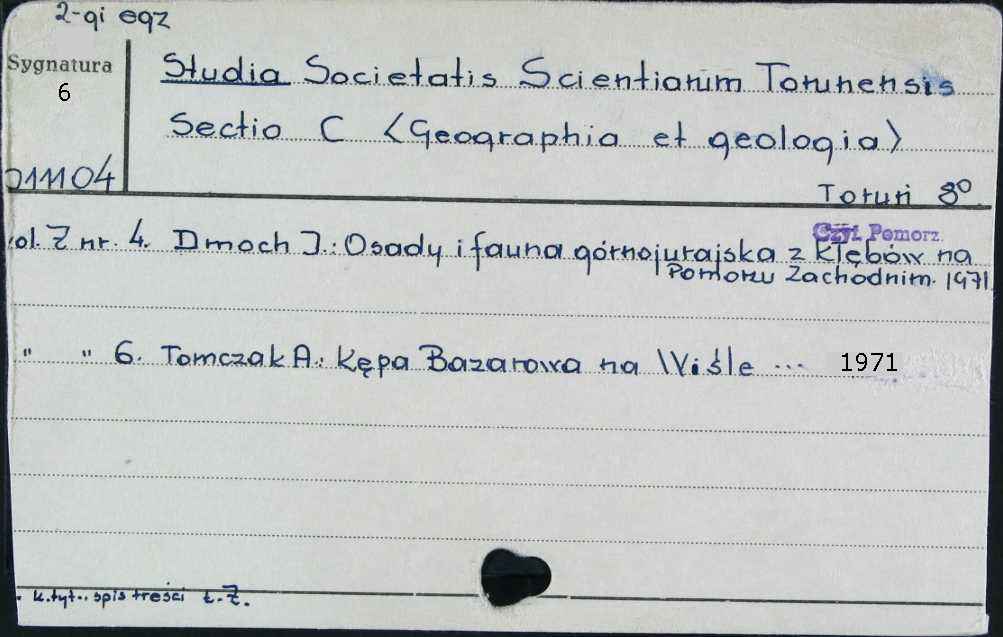 2-gi egz
Sygnatura
6
011104
Studia Societatis Scientiarum Torunensis
Sectio C <Geographia et geologia>
Toruń 8°
Czyt. Pomorz.
ol. 7 nr. 4. Dmoch I.: Osady i fauna górnojurajska z Kłębów na
Pomorzu Zachodnim. 1971
" " 6. Tomczak A.: Kępa Bazarowa na Wiśle ... 1971
k.tyt.. spis treści